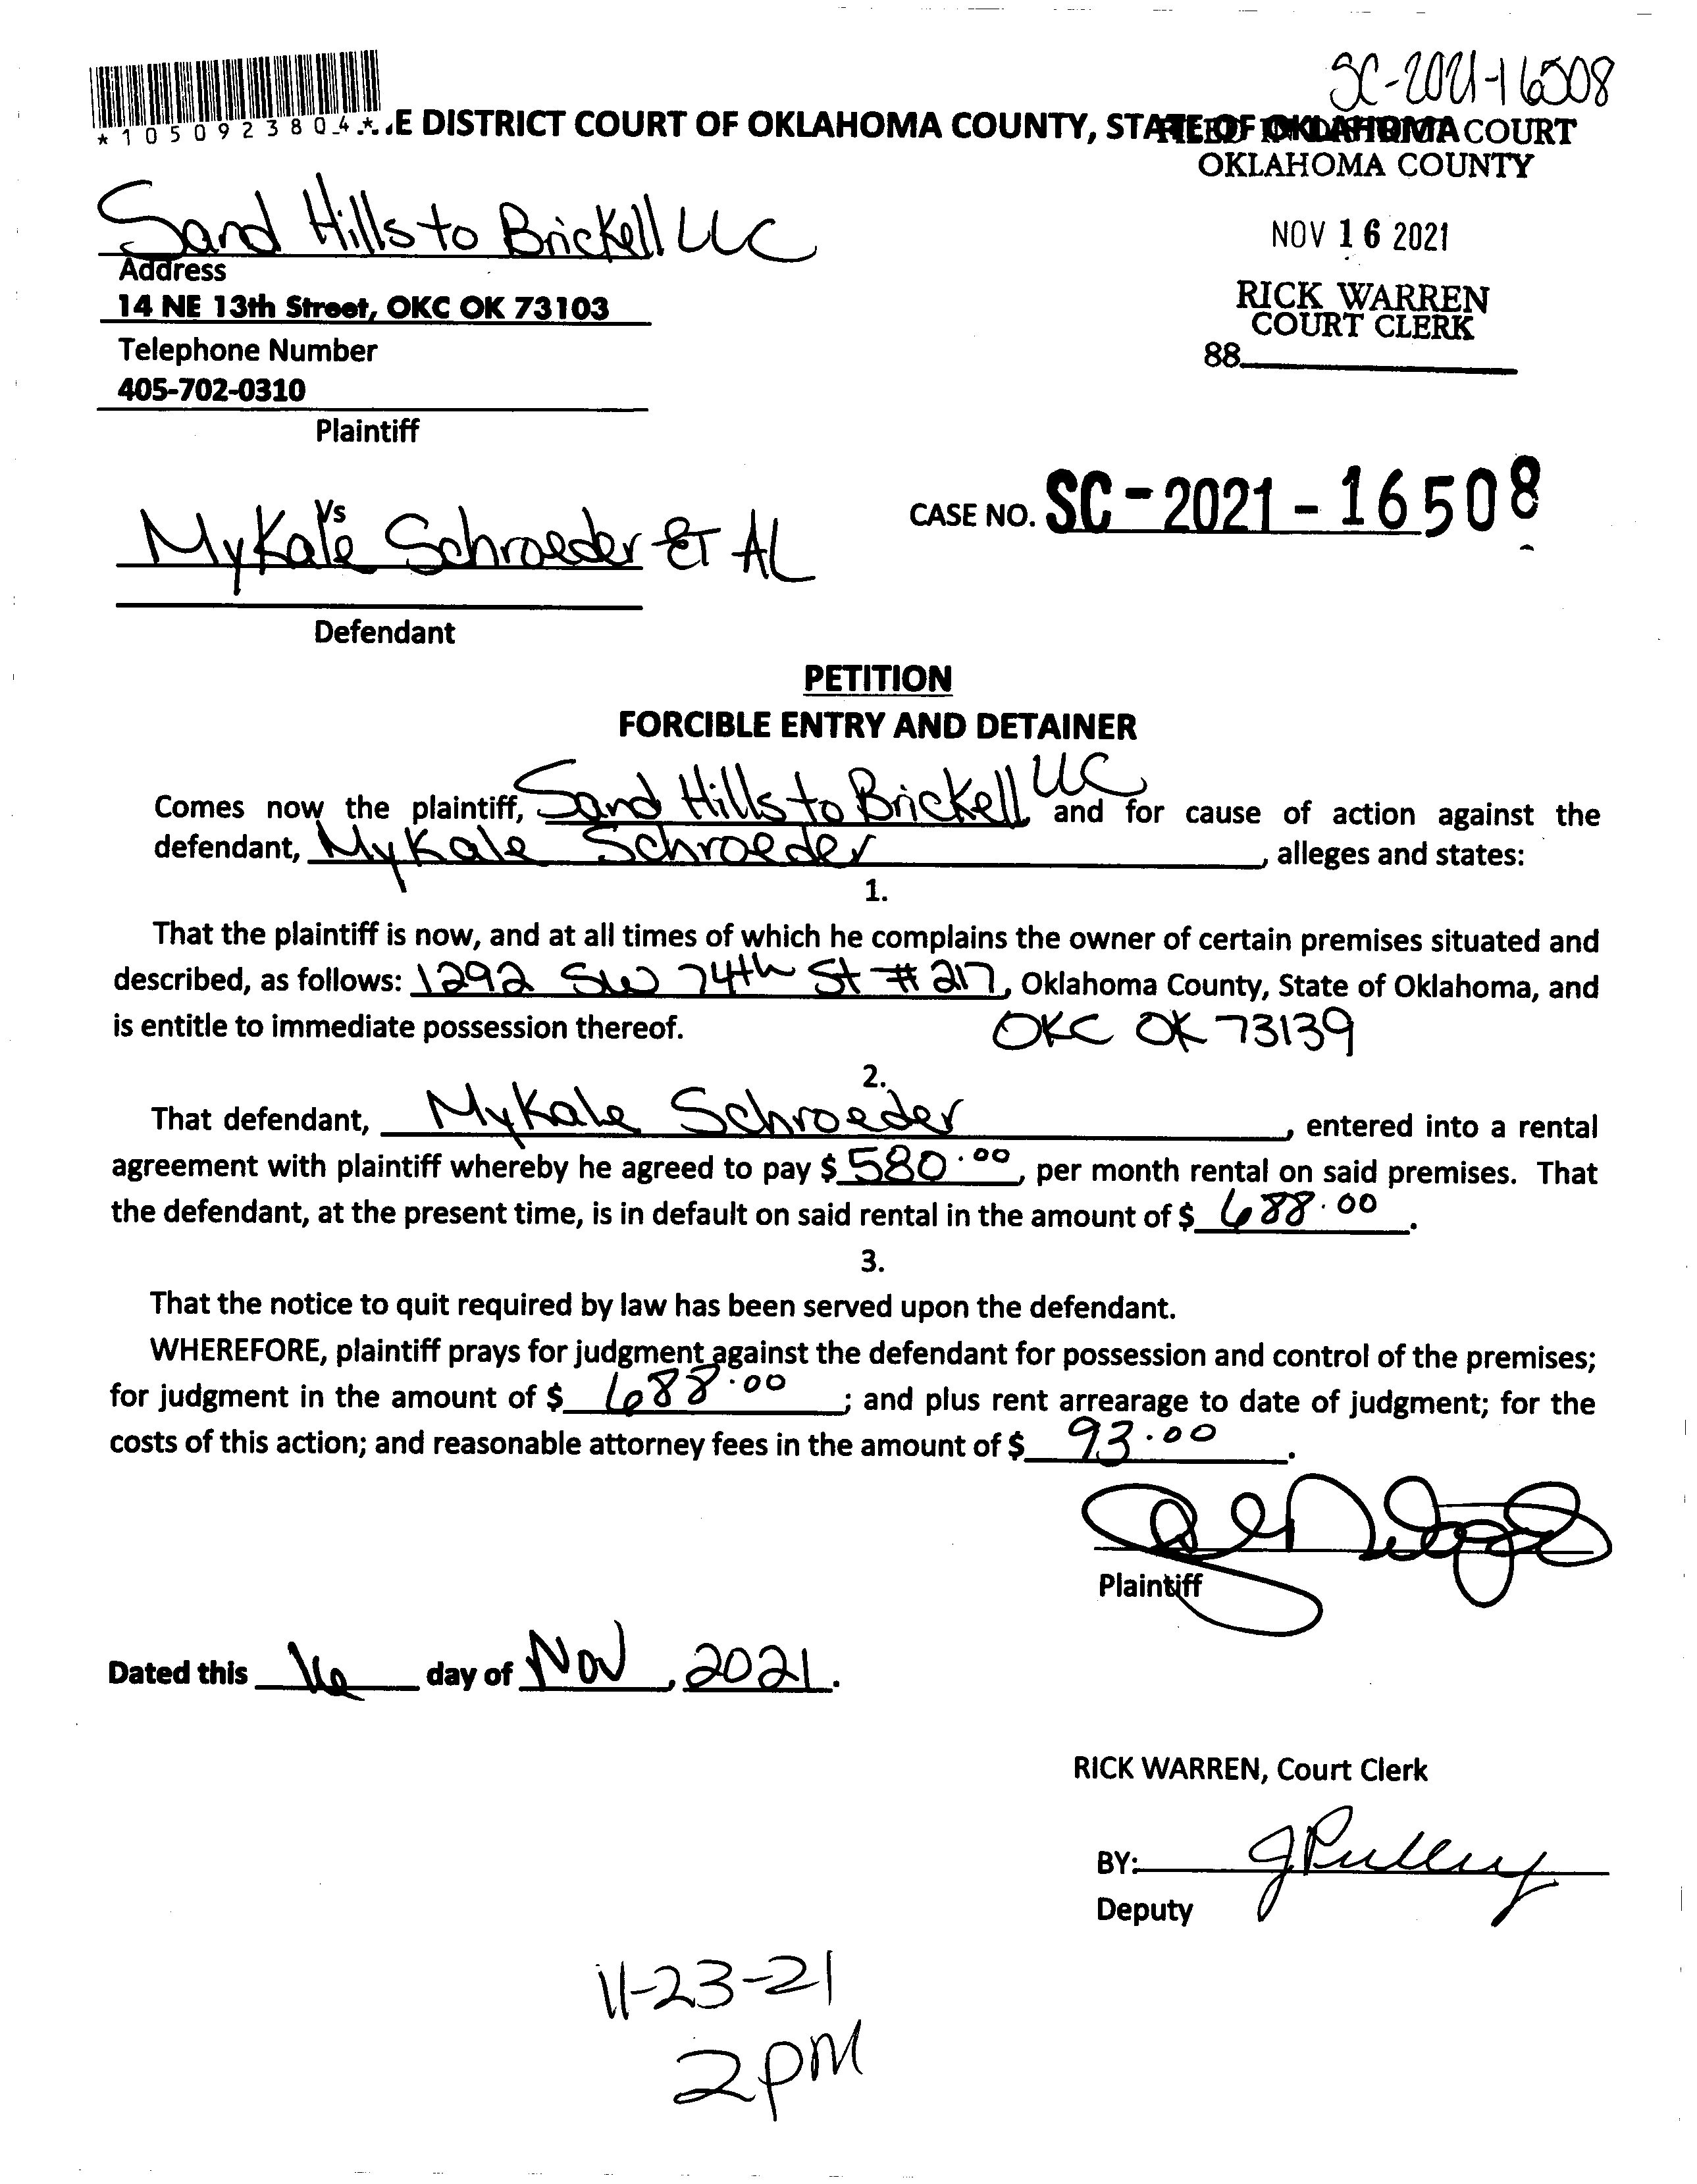 SC-2021-16508
*1050923804*
E DISTRICT COURT OF OKLAHOMA COUNTY, STATE OF OKLAHOMA
COURT
OKLAHOMA COUNTY
Sand Hills to Brickell LLC
NOV 16 2021
Address
14 NE 13th Street, OKC OK 73103
RICK WARREN
COURT CLERK
Telephone Number
88
405-702-0310
Plaintiff
CASE NO. SC-2021-16508
Vs
Mykale Schroeder ET AL
Defendant
PETITION
FORCIBLE ENTRY AND DETAINER
Comes now the plaintiff, Sand Hills to Brickell LLC and for cause of action against the
defendant, Mykale Schroeder, alleges and states:
1.
That the plaintiff is now, and at all times of which he complains the owner of certain premises situated and
described, as follows: 1292 SW 74th St # 217, Oklahoma County, State of Oklahoma, and
is entitle to immediate possession thereof. OKC OK 73139
2.
That defendant, Mykale Schroeder, entered into a rental
agreement with plaintiff whereby he agreed to pay $ 580.00, per month rental on said premises. That
the defendant, at the present time, is in default on said rental in the amount of $ 688.00.
3.
That the notice to quit required by law has been served upon the defendant.
WHEREFORE, plaintiff prays for judgment against the defendant for possession and control of the premises;
for judgment in the amount of $ 688.00; and plus rent arrearage to date of judgment; for the
costs of this action; and reasonable attorney fees in the amount of $ 93.00.
Plaintiff
Dated this 16 day of Nov, 2021.
RICK WARREN, Court Clerk
BY: J Pulley
Deputy
11-23-21
2pm